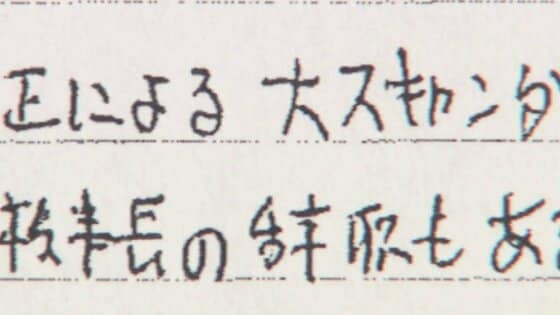 正による 大スキャンダ
長の辞職もあ